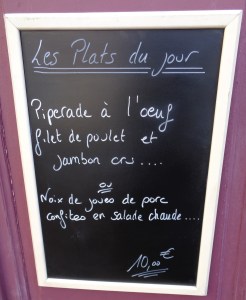 Les Plats du jour
Piperade à l'oeuf
filet de poulet et
jambon cru....
ou
Noix de joues de porc
confites en salade chaude....
10,00€